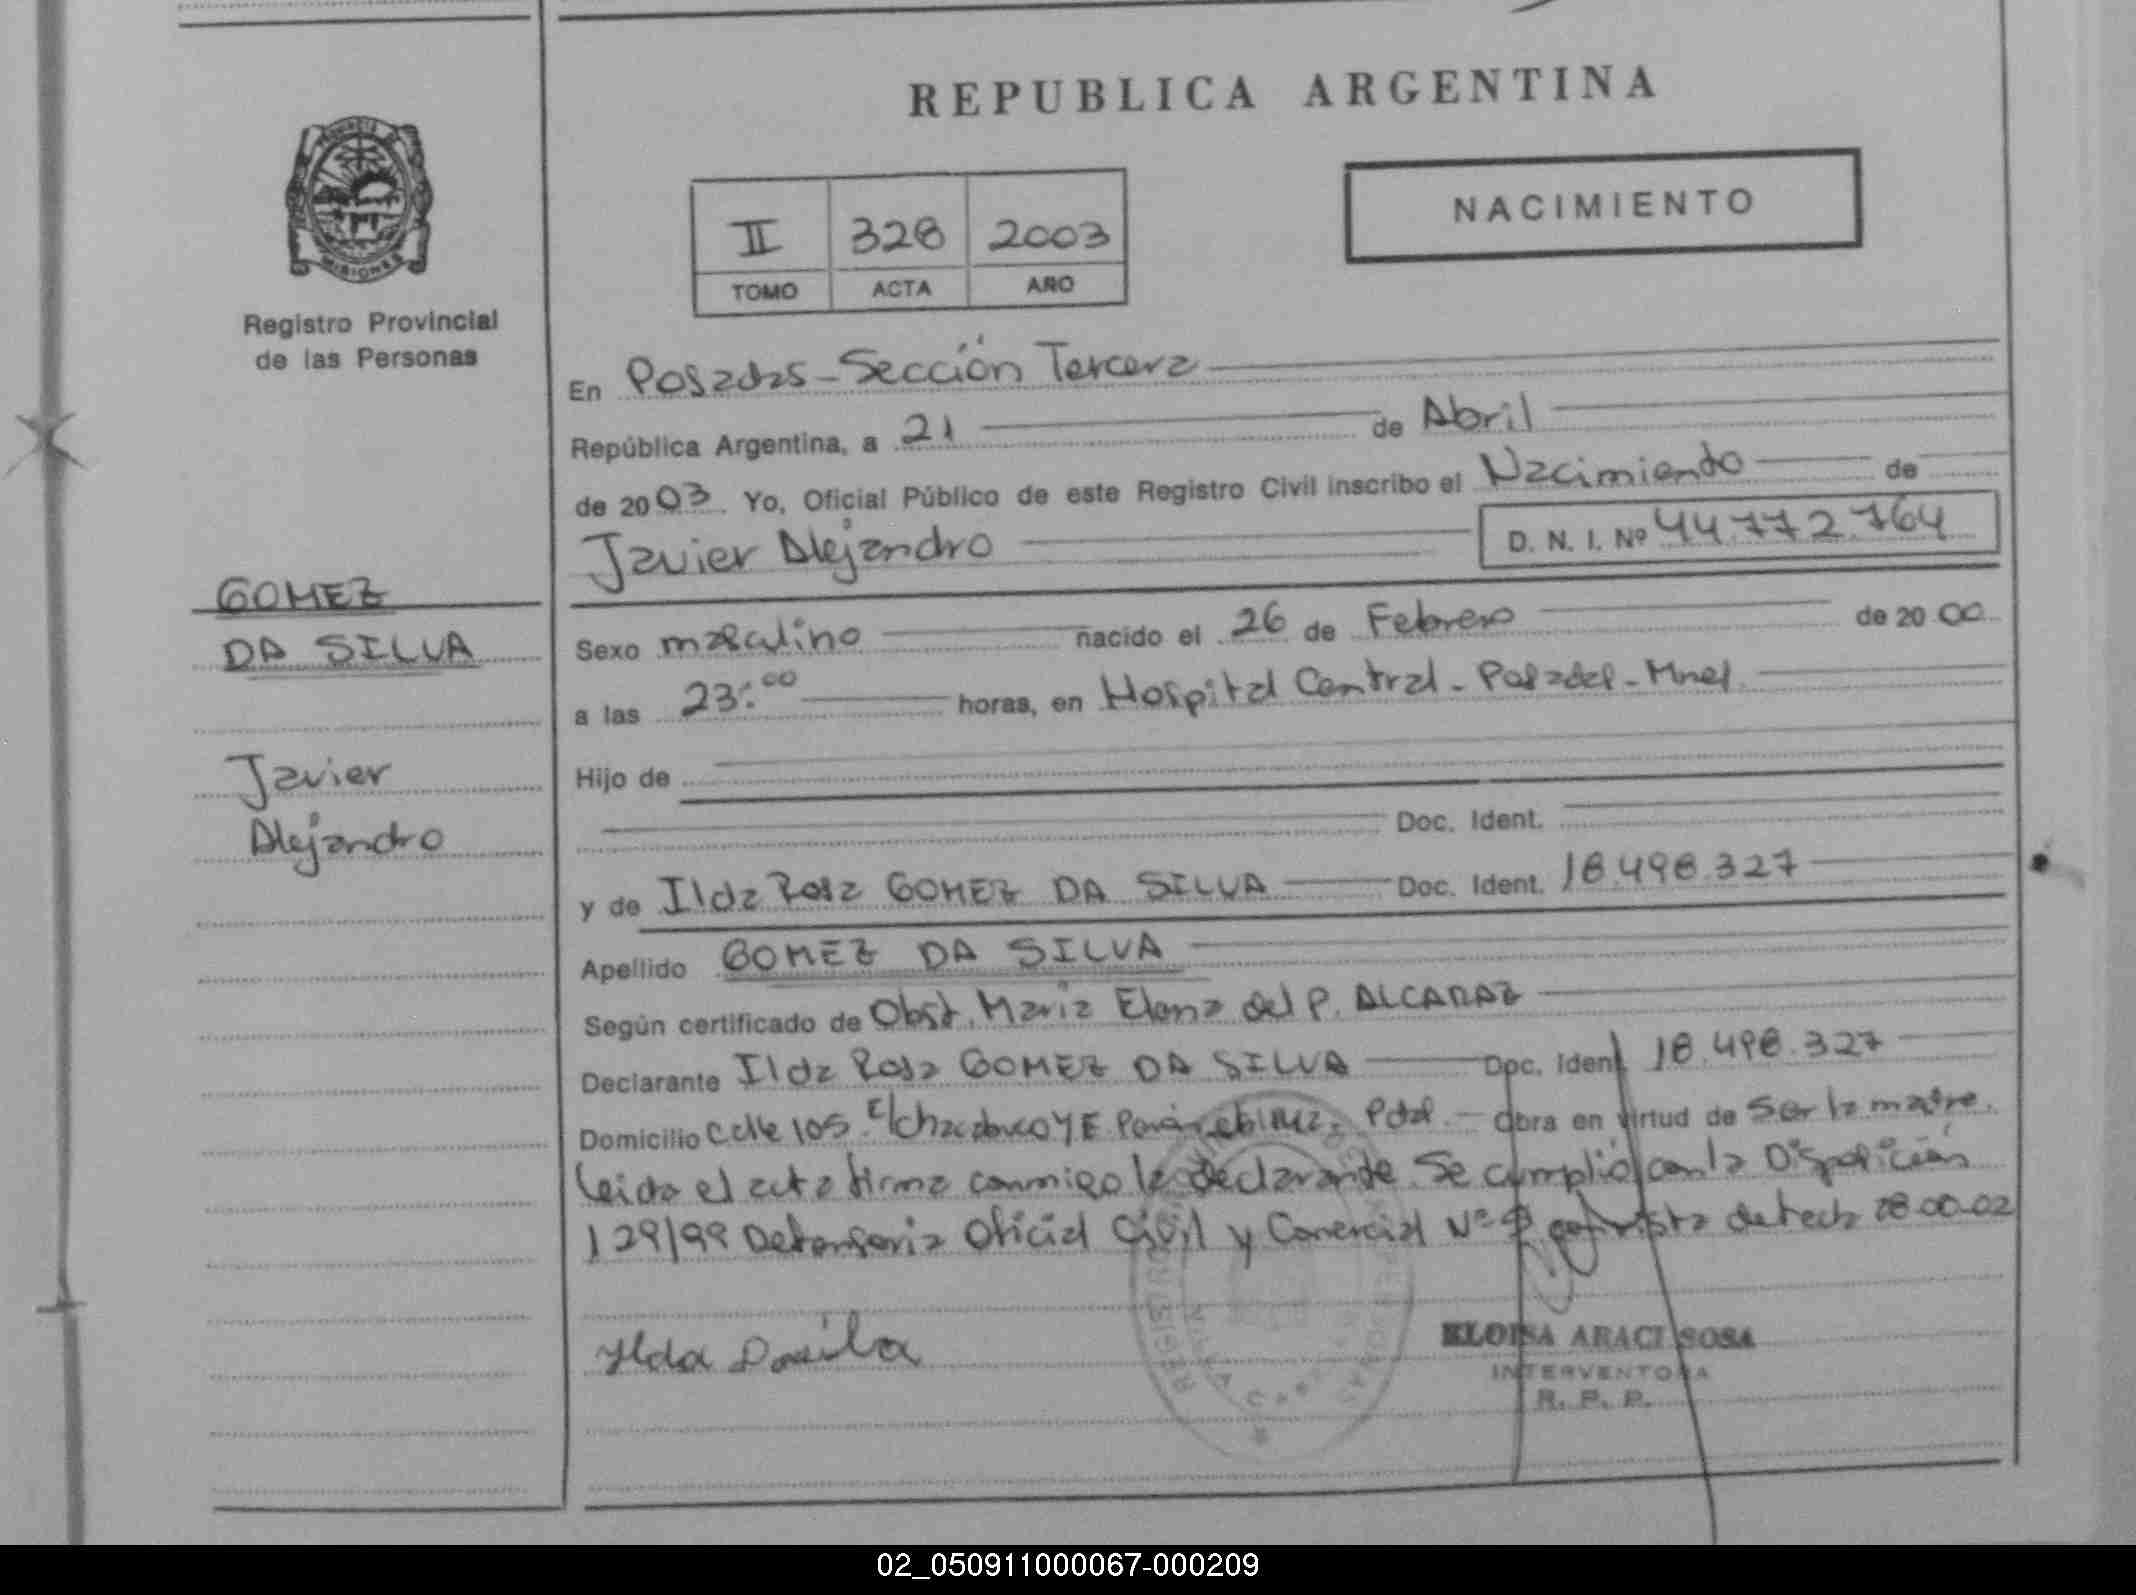 REPUBLICA ARGENTINA
PROVINCIA DE
MISIONES
Registro Provincial
de las Personas
NACIMIENTO
II 328 2003
TOMO ACTA AÑO
En Posadas - Sección Tercera
República Argentina, a 21 de Abril
de 2003. Yo, Oficial Público de este Registro Civil inscribo el Nacimiento de
Javier Alejandro D. N. I. Nº 44.772.764
GOMEZ
DA SILVA
Javier
Alejandro
Sexo masculino nacido el 26 de Febrero de 2000
a las 23:00 horas, en Hospital Central - Posadas - Mnes.
Hijo de
Doc. Ident.
y de Ilda Rosa GOMEZ DA SILVA Doc. Ident. 18.498.327
Apellido GOMEZ DA SILVA
Según certificado de Obst. Maria Elena del P. ALCARAZ
Declarante Ilda Rosa GOMEZ DA SILVA Doc. Ident. 18.498.327
Domicilio Calle 105 Pdas. Obra en virtud de Ser la madre.
Leida el acta firma conmigo la declarante. Se cumplió con la Disposición
129/99 Defensoria Oficial Civil y Comercial Nº vista de fecha
Ilda Dasilva
ELOISA ARACI SOSA
INTERVENTORA
R. P. P.
02_050911000067-000209